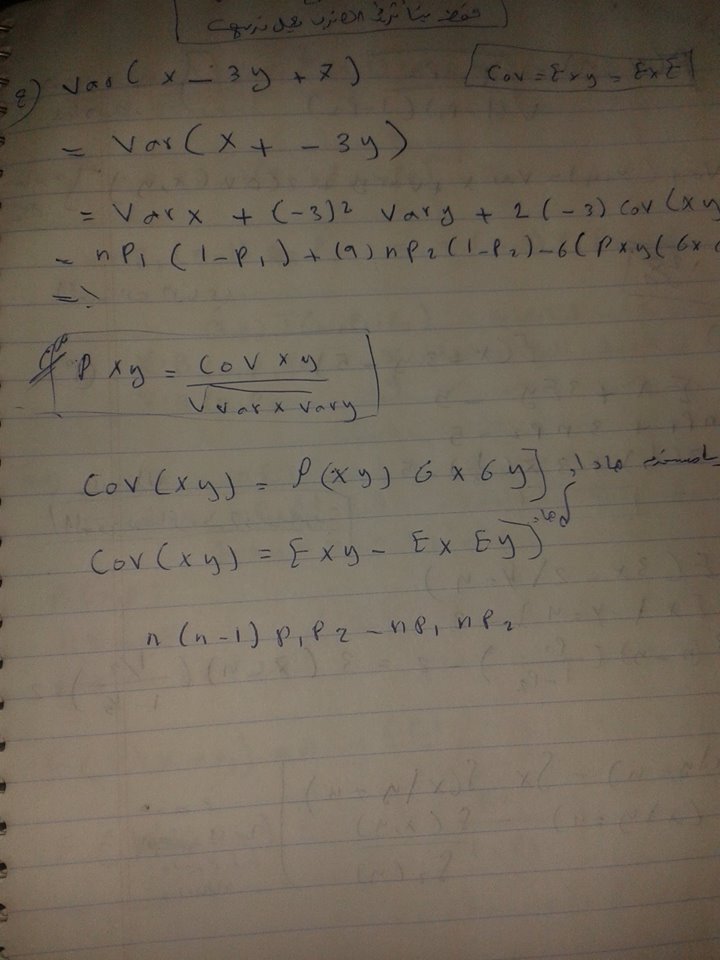 e) Var( x - 3y + 7 )
Cov = Exy - ExE
= Var( x + - 3y )
= Var x + (-3)² Var y + 2 (-3) Cov (xy
= nP₁ (1-P₁) + (9) nP₂ (1-P₂) - 6( Pxy( 6x 6
=
P xy = Cov xy / √var x vary
Cov (xy) = P(xy) 6x 6y ]
Cov (xy) = Exy - Ex Ey
n (n-1) p₁ p₂ - np₁ np₂